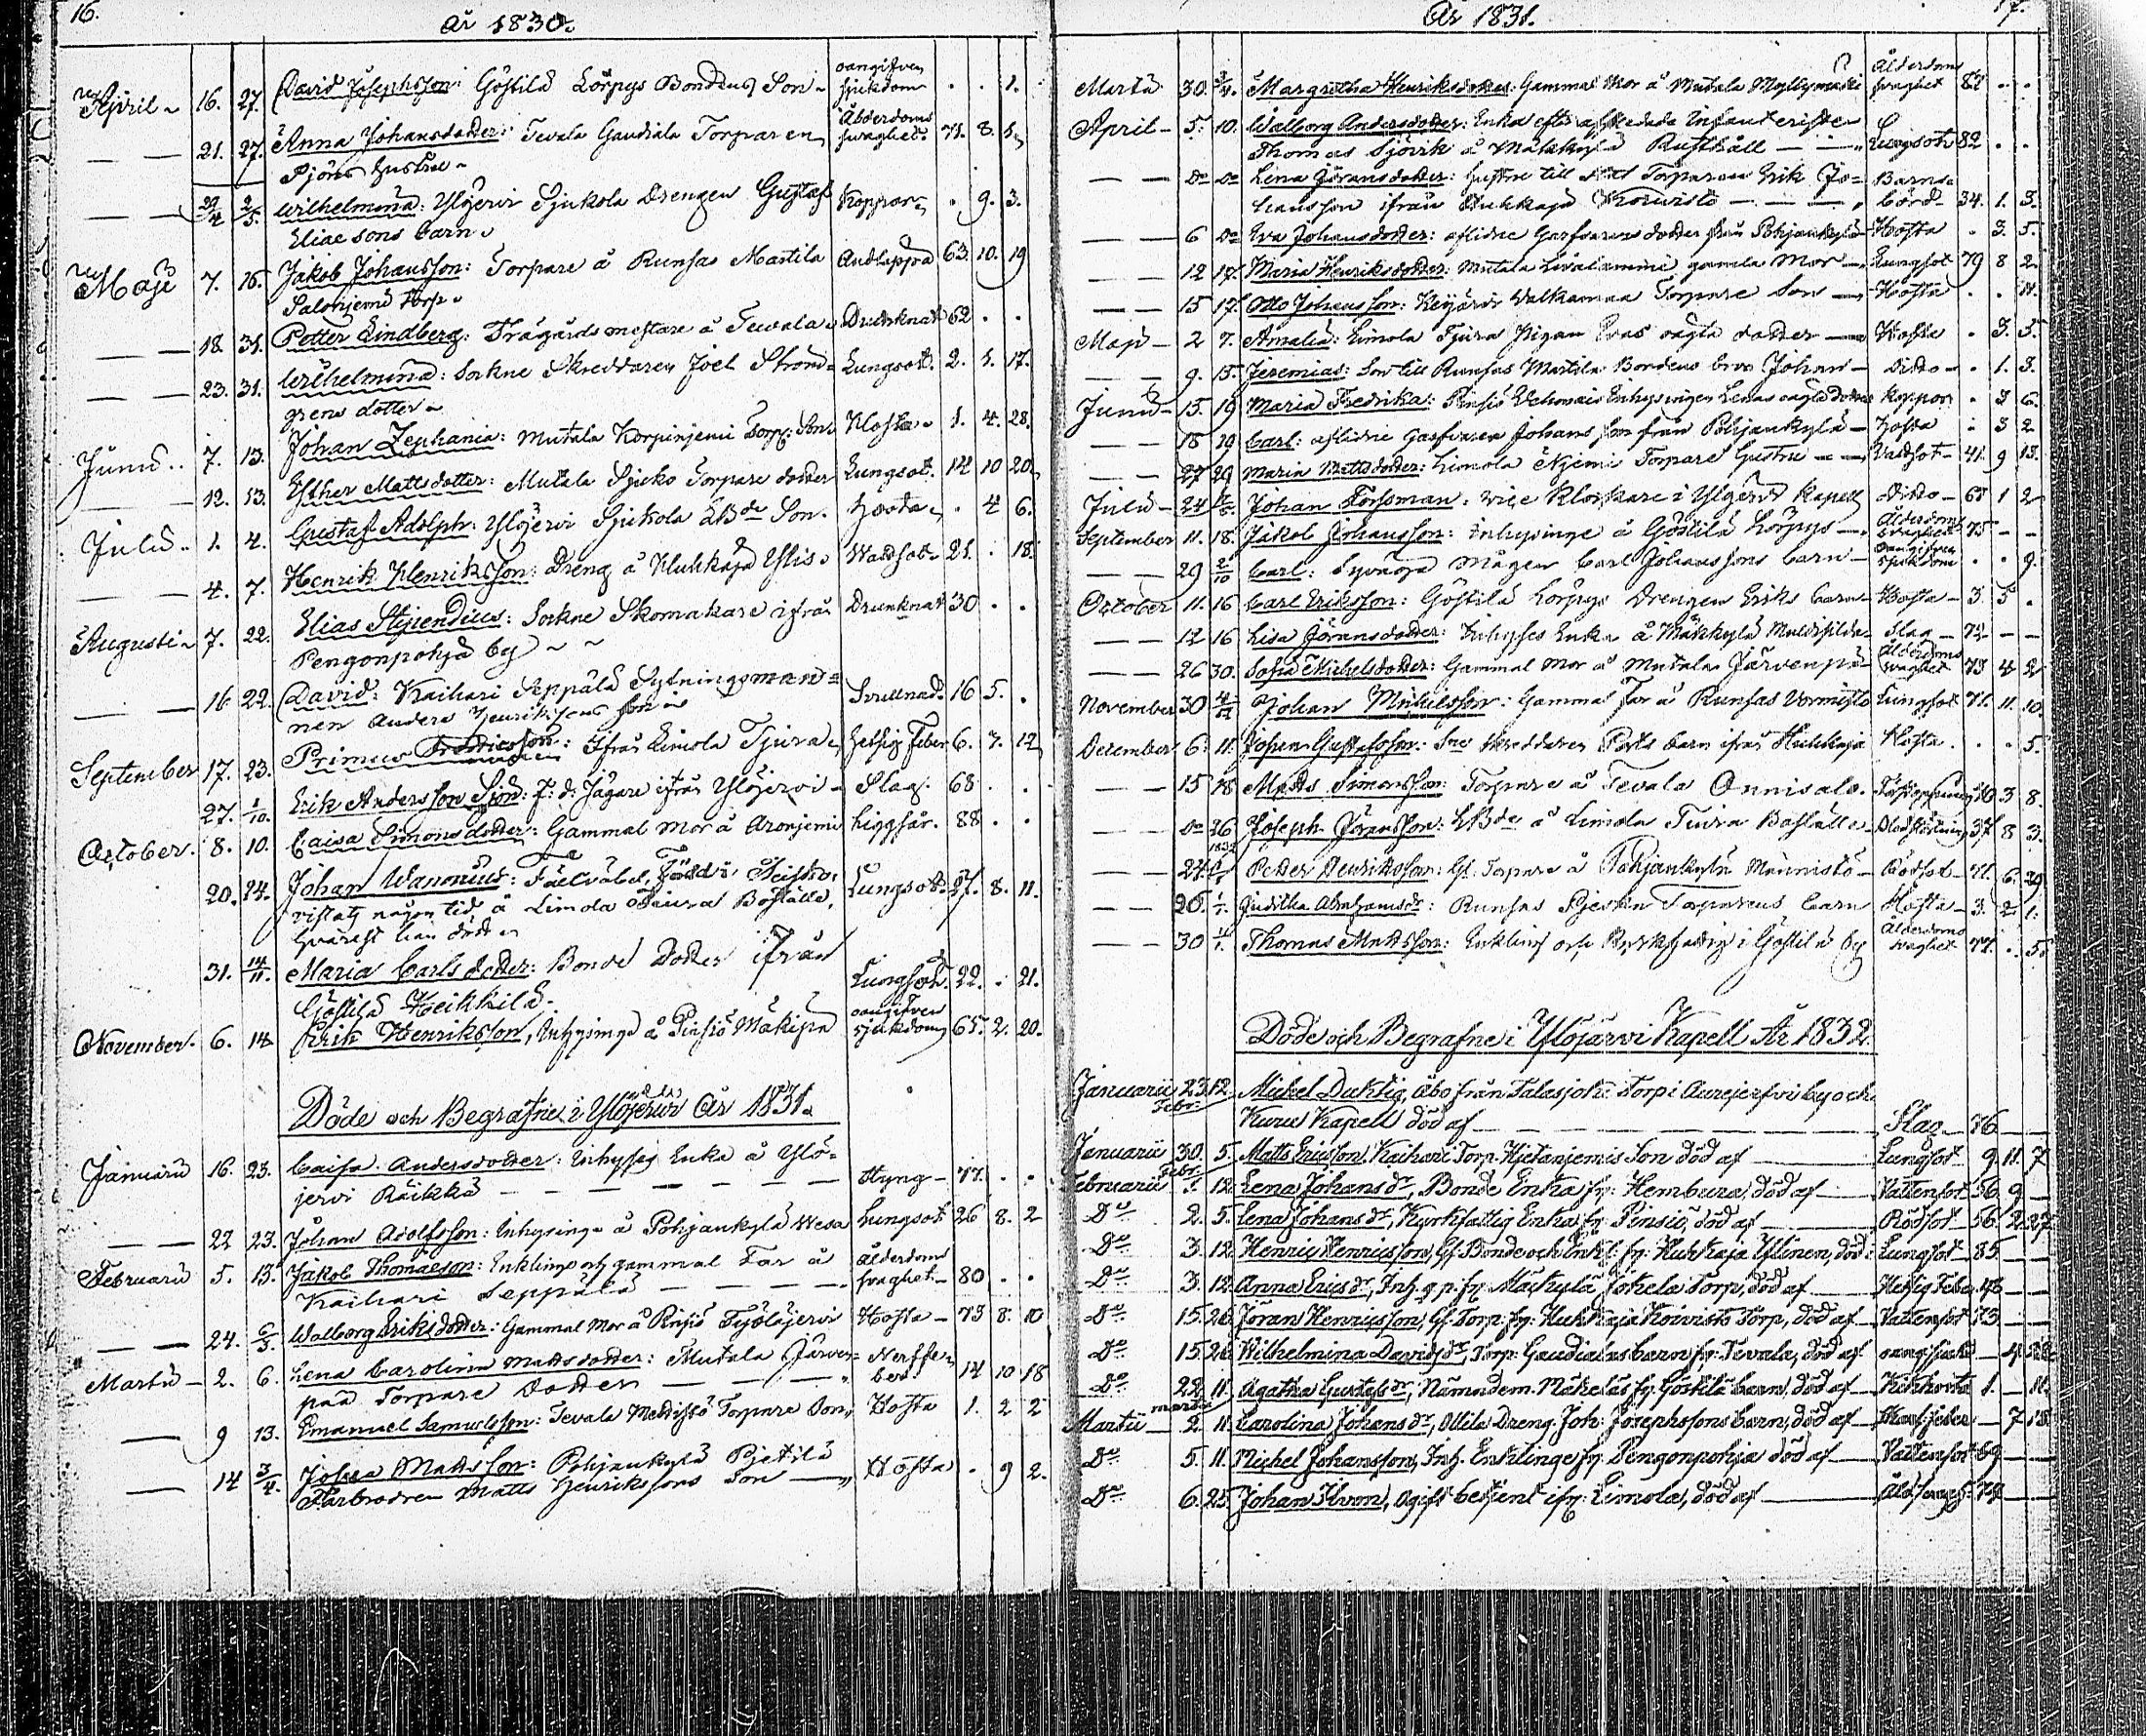 16.
År 1830.
April 16. 27. David Josephsson: Göstilä Lörpys Bondens Son oangifven sjukdom . . 1.
21. 27. Anna Johansdotter: Tevala Gaudiala Torparen Ålderdoms svaghet 71. 8. 1.
Sjöns hustru
29/4 2/5 Wilhelmina: Ylöjervi Sjukola Drengen Gustaf Koppor . 9. 3.
Eliae sons barn
Maji 7. 16. Jakob Johansson: Torpare å Runsas Martila Andtäppa 63. 10. 19
Salonjemi torp
18 31. Petter Lindberg: Trägårdsmestare å Tevala Drunknat 62 . .
23. 31. Wilhelmina: Sockne Skreddaren Joel Ström- Lungsot. 2. 1. 17.
grens dotter
Junii 7. 13. Johan Zephania: Mutala Korpinjemi Torp. Son Hosta 1. 4. 28.
12. 13. Esther Mattsdotter: Mutala Sjuko Torpare dotter Lungsot. 14 10 20
Julii 1. 4. Gustaf Adolph: Ylöjervi Sjukola Son. . 4 6.
4. 7. Henrik Henriksson: Dreng å Huhkaja Ylis Wattsot 21. . 18.
Augusti 7. 22. Elias Stipendius: Sockne Skomakare ifrån Drunknat 30 . .
Pengonpohja by
16 22. David: Kaihari Seppälä Sytningsman-
nen Anders Henrikssons son Svullnad. 16 5. .
September 17. 23. Primus: Ifrån Limola Tjura Hetsig Feber 6. 7. 12
27. 1/10. Erik Andersson Sjön: f: d: Jägare ifrån Ylöjervi Slag. 68 . .
October. 8. 10. Caisa Simonsdotter: Gammal mor å Aronjemi Liggsår. 88 . .
20. 24. Johan Wanonius: Fältväbel,
vistats någon tid å Limola Tiura Boställe, Lungsot 57. 8. 11.
hvarest han dödde
31. 14/11. Maria Carlsdotter: Bonde Dotter ifrån
Göstilä Heikkilä Lungsot. 22. . 21.
November. 6. 14. Erik Henriksson, Inhysinge å Pinsiö Mäkipä oangifven sjukdom 65. 2. 20.
Döde och Begrafne i Ylöjerwi År 1831.
Januarii 16. 23. Caisa Andersdotter: Inhyses Enka å Ylö-
jervi Räikkä — — — Styng 77. . .
22 23. Johan Adolfsson: Inhysinge å Pohjankylä Wesa Lungsot 26 8. 2
Februarii 5. 13. Jakob Thomaeson: Enkling och gammal Far å Ålderdoms
Kaihari Seppälä — — — svaghet 80 . .
24. 6/3. Walborg Eriksdotter: Gammal Mor å Pinsiö Työläjervi Hosta 73 8. 10
Martii 2. 6. Lena Carolina Mattsdotter: Mutala Järven-
pää Torpare Dotter — — 14 10 18
9 13. Emanuel Samuelsson: Tevala Mettistö Torpare Son Hosta 1. 2 2
14 3/4. Johan Mattsson: Pohjankylä Pjetilä
Farbrodren Matts Henrikssons Son Hosta . 9 2.
17.
År 1831.
Martii 30. 3/4. Margretha Henriksdotter: Gammal Mor å Mutala Myllymäki Ålderdoms svaghet 82 . .
April 5. 10. Walborg Andersdotter: Enka efter afskedade Infanteristen
Thomas Sjövik å Mäkkylä Rusthåll — — Lungsot 82 . .
Do Do Lena Jöransdotter: Hustru till Torparen Erik Jo- Barns-
hansson ifrån Huhkaja Koivisto — — börd 34. 1. 3.
6 Do Eva Johansdotter: aflidne Garfvarens dotter från Pohjankylä Hosta . 3. 5.
12 17. Maria Henriksdotter: Mutala Livalammi gamla Mor Lungsot 79 8 2
15 17. Otto Johansson: Keijärvi Walkamaa Torpare Son Hosta . . 11.
Maji 2 7. Amalia: Limola Tjura Pigan Evas oägta dotter Hosta . 3. 5.
9. 15. Jeremias: Son till Runsas Martila Bondens bror Johan Ditto . 1. 3.
Junii 15. 19 Maria Fredrika: Pinsiö Inhysingen Lenas oägta Dotter Koppor . 3 6.
18 19 Carl: aflidne Garfvaren Johans son från Pohjankylä Hosta . 3 2
27 29 Maria Mattsdotter: Limola Njemi Torpare hustru Wattsot 41. 9 13.
Julii 24 Johan Forssman: vice Klockare i Ylöjervi Kapell Ditto 68 1 2
September 11. 18. Jakob Johansson: Inhysinge å Göstilä Lörpys Ålderdoms svaghet 75 - -
29 2/10 Carl: mågen Carl Johanssons barn oangifven sjukdom . . 9.
October 11. 16 Carl Eriksson: Göstilä Lörpys Drengen Eriks barn Hosta 3. 5 .
12 16 Lisa Jöransdotter: Inhyses Enka å Mäkkylä Slag 72 - -
26 30. Sofia Michelsdotter: Gammal Mor å Mutala Järvenpä Ålderdoms svaghet 73 4 2
November 30 4/12 Johan Michelsson: Gammal Far å Runsas Vormisto Lungsot 71. 11. 10.
December 6. 11. Johan Gustafsson: Skreddaren barn ifrån Huhkaja Hosta . . 5.
15 18 Matts Simonsson: Torpare å Tevala Onnisalo 3 8.
Do 26 Joseph Jöransson: å Limola Tiura Boställe 37 8 3.
1832
24 Petter Henriksson: Gl. Torpare å Pohjankylä Männistö Rödsot 71. 6. 29
26. 1/1. Juditha Abrahamsdr: Runsas Torparens barn Hosta 3. 2 1.
30 1/1. Thomas Mattsson: Enkling och Kyrkfattig i Göstilä by Ålderdoms svaghet 77. . 5
Döde och Begrafne i Ylöjärvi Kapell År 1832.
Januarii 23. 12. Febr: Mickel Duktig, Åbo från Talasjoki Torp i Aurejerfvi by och
Kuru Kapell död af — — — Slag 76 —
Januarii 30. 5. Febr: Matts Ericsson, Kaihari Torp. Hietanjemis Son död af — Lungsot 9. 11. 7
Februarii 1. 12. Lena Johansdr, Bonde Enka fr: Hembura, död af — Vattensot 56 9 —
Do 2. 5. Lena Johansdr, Kyrkfattig Enka fr: Pinsiö, död af — Rödsot 56. 2. 27.
Do 3. 12. Henric Henricsson, Gl. Bonde och Enkl. fr: Huhkaja Ylinen, död: Lungsot 85 —
Do 3. 12. Anna Ericsdr, Inh. g. p. fr: Mäckylä Jokela Torp, död af — Hetsig Feber —
Do 15. 26 Jöran Henricsson, Gl. Torp. fr: Huhkaja Koivisto Torp, död af Vattensot 73 —
Do 15. 26 Wilhelmina Davidsdr, Torp. Gaudialas barn fr: Tevala, död af oang. sjukd — 4.
Do 22. 11. Martii Agatha Gustafsdr, Nämndem. Mäkeläs fr: Göstilä barn, död af — Kikhosta 1. — 11.
Martii 2. 11. Carolina Johansdr, Ollila Dreng. Joh: Josephssons barn, död af — — 7 18
Do 5. 11. Michel Johansson, Inh. Enklinge fr: Pengonpohja död af — Vattensot 69 —
Do 6. 25. Johan Ilvon, Ogift betjent ifr: Limola, död af — 79 —